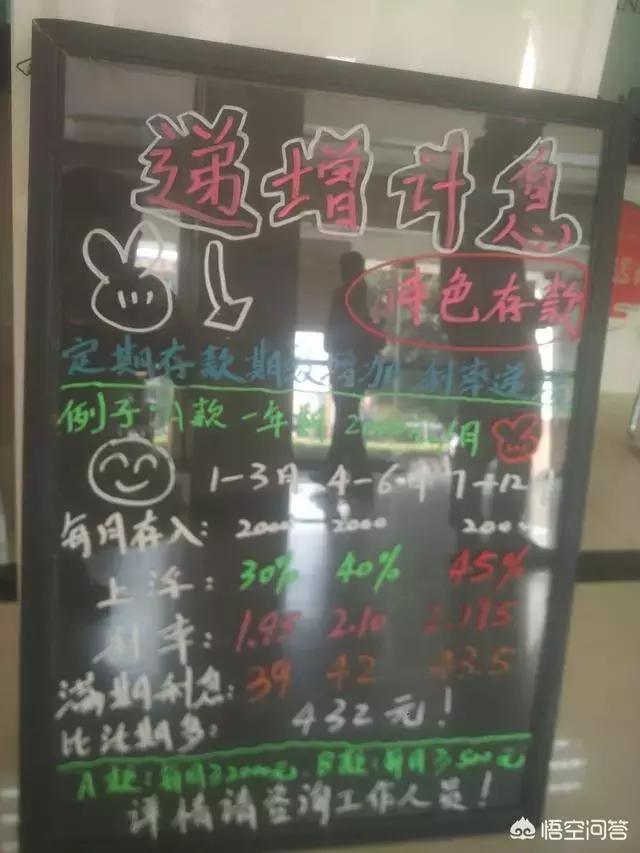 递增计息
特色存款
定期存款期数增加 利率递增
例子:A款 一年期 2000元/月
1-3月 4-6月 7-12
每月存入: 2000 2000 2000
上浮: 30% 40% 45%
利率: 1.95 2.10 2.175
满期利息: 39 42 43.5
比活期多: 432元!
A款:每月≥2000元 B款:每月≥500元
详情请咨询工作人员!
悟空问答